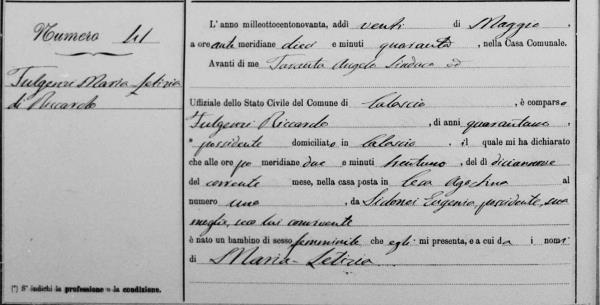 Numero 41
Fulgenzi Maria Letizia
di Riccardo
(*) S' indichi la professione o la condizione.
L' anno millottocentonovanta, addì venti di Maggio,
a ore anti meridiane dieci e minuti quaranta, nella Casa Comunale.
Avanti di me Angelo Sindaco ed
Uffiziale dello Stato Civile del Comune di Calascio, è comparso
Fulgenzi Riccardo, di anni quarantuno
* possidente domiciliato in Calascio, il quale mi ha dichiarato
che alle ore po meridiane due e minuti trentuno, del dì diciannove
del corrente mese, nella casa posta in al
numero uno, da Eugenia, possidente, sua
moglie, seco lui convivente
è nato un bambino di sesso femminile che egli mi presenta, e a cui da i nomi
di Maria Letizia